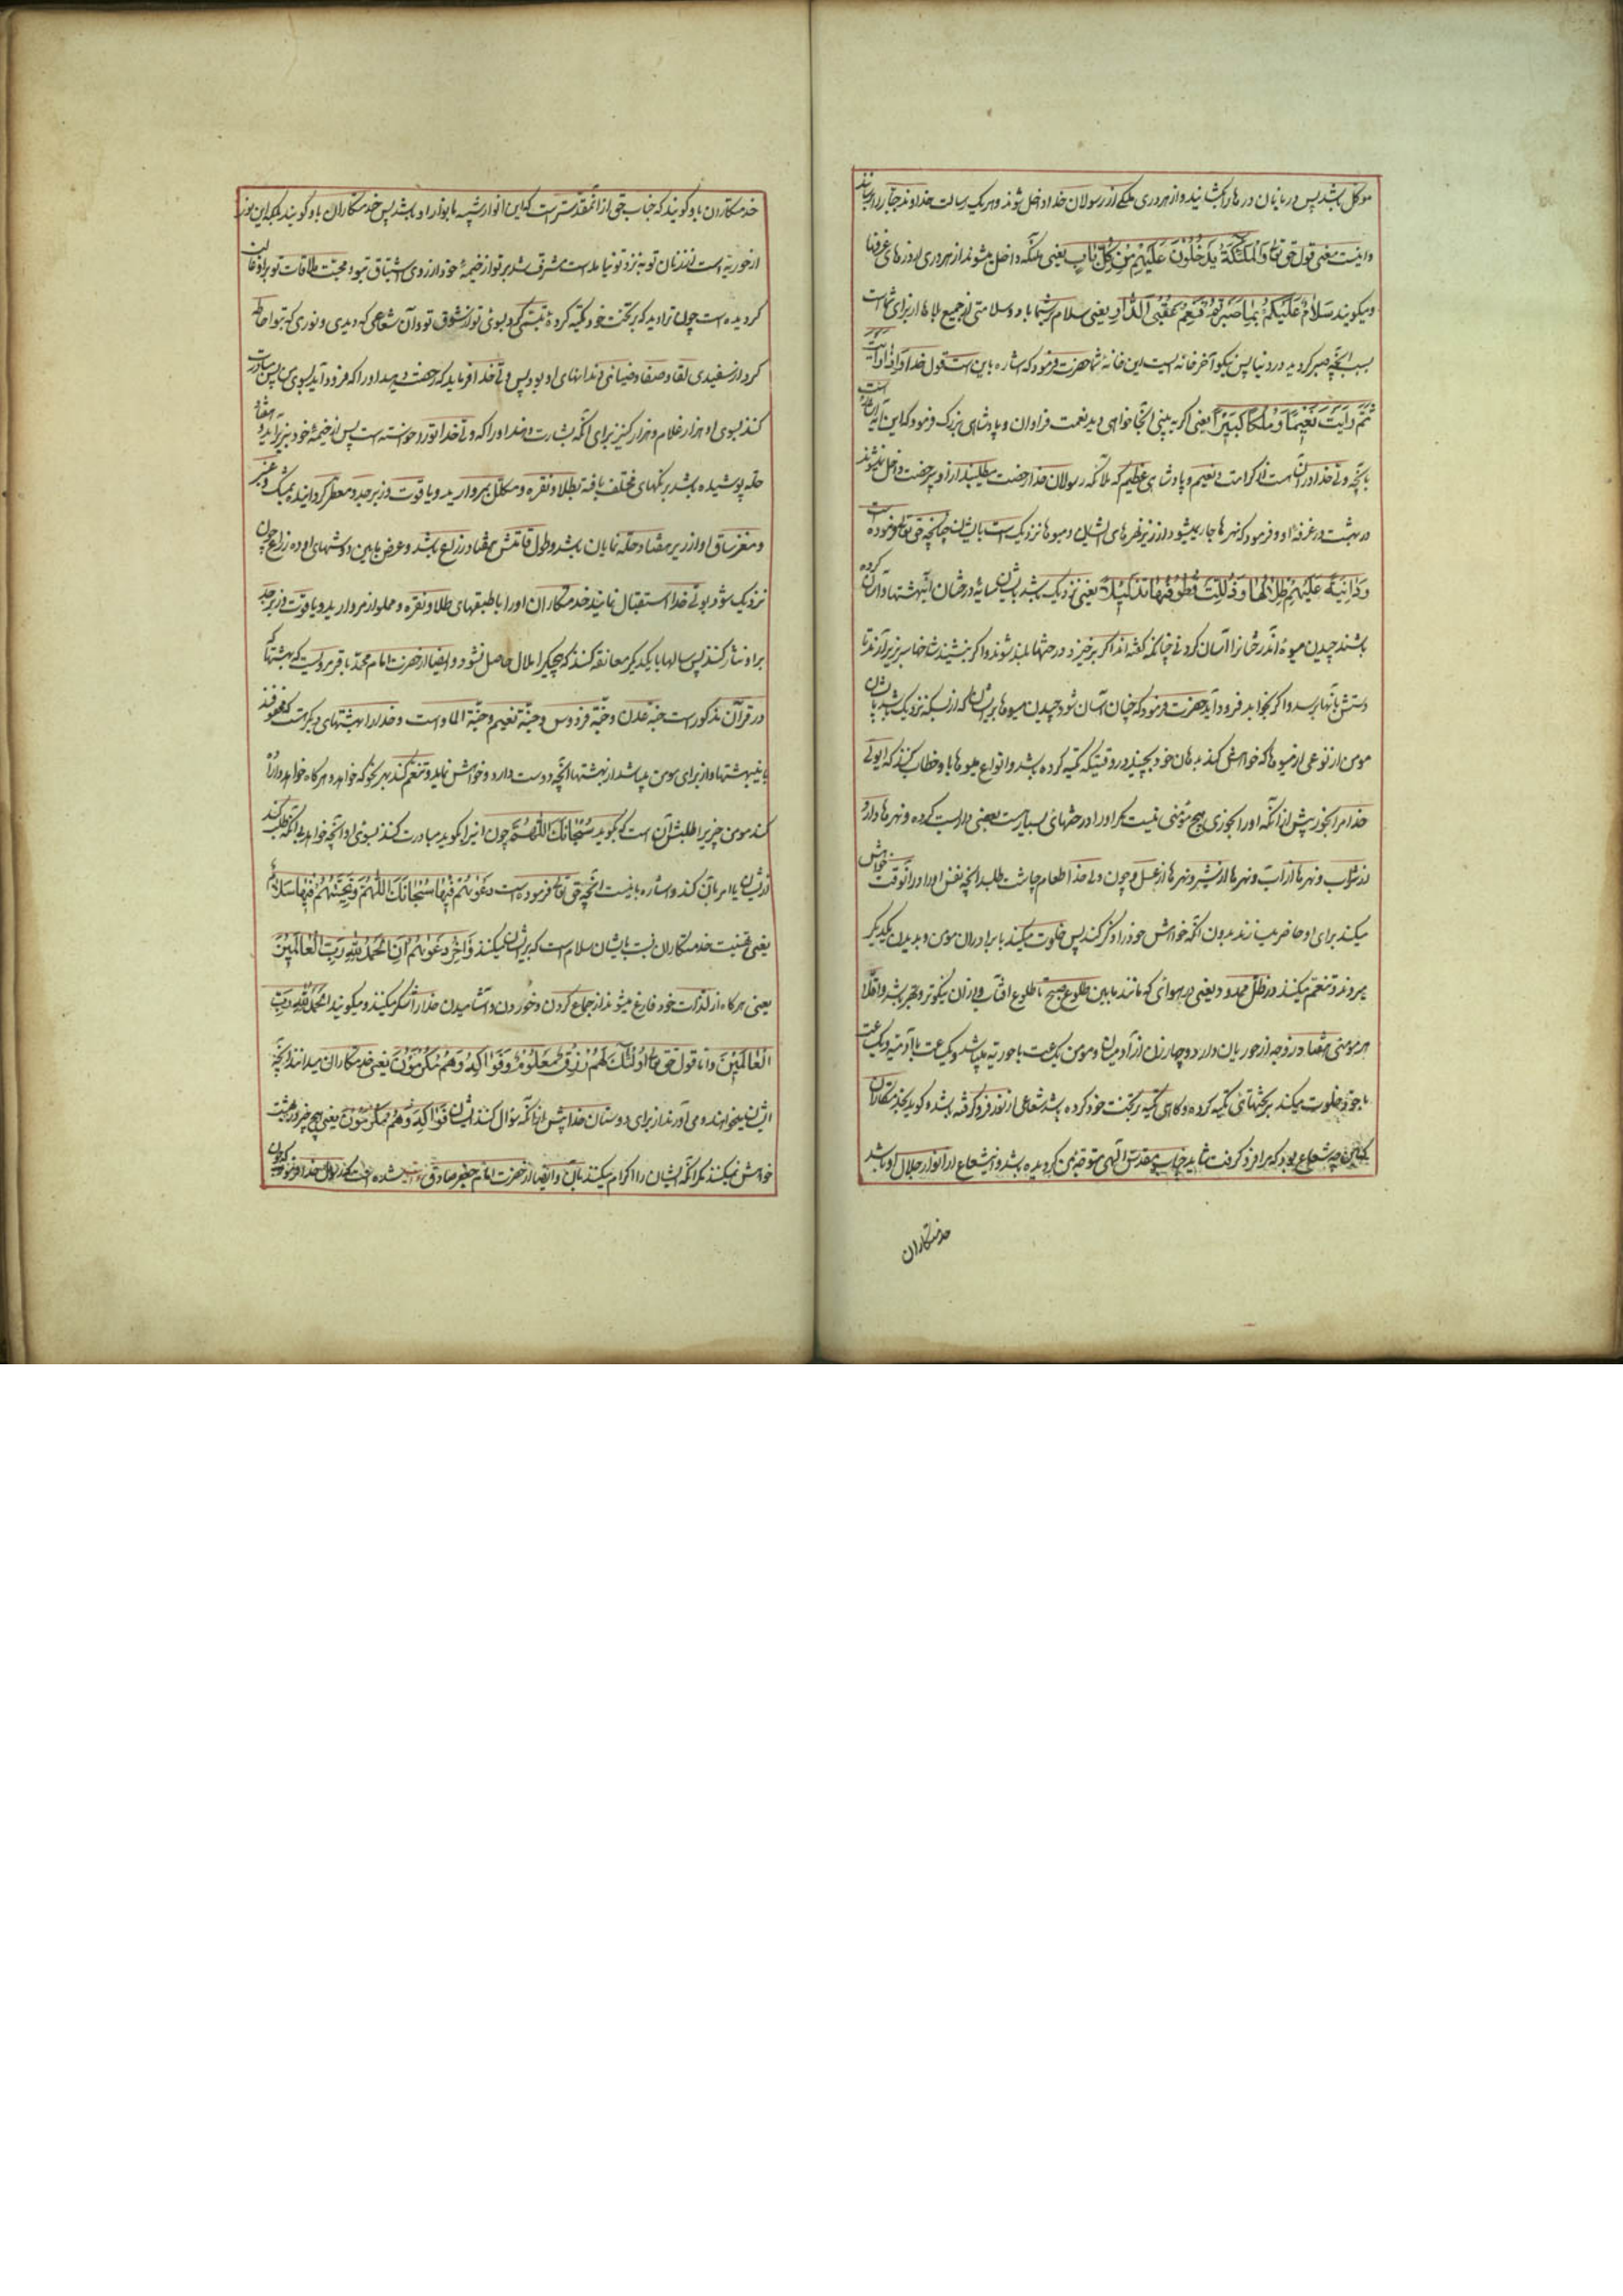 موکل باشد پس دربانان درها را بگشایند و از هر دری ملکی از رسولان خدا داخل شوند و هر یک رسالت خداوند جبار را برسانند
و اینست معنی قول حق تعالی وَالْمَلٰئِکَةُ یَدْخُلُونَ عَلَیْهِمْ مِنْ کُلِّ بَابٍ یعنی ملئکه داخل میشوند از هر دری از درهای غرفها
و میگویند سَلَامٌ عَلَیْکُمْ بِمَا صَبَرْتُمْ فَنِعْمَ عُقْبَی الدَّارِ یعنی سلام بر شما باد و سلامتی از جمیع بلاها از برای شماست
بسبب آنچه صبر کردید در دنیا پس نیکو آخر خانه ایست این خانهٔ شما حضرت فرمود که اشاره باین است قول خدا وَاِذَا رَاَیْتَ
ثَمَّ رَاَیْتَ نَعِیمًا وَمُلْکًا کَبِیرًا یعنی اگر به بینی آنجا خواهی دید نعمت فراوان و پادشاهی بزرگ فرمود که این آیه اشاره است
بآنچه ولی خدا در آن است از کرامت و نعیم و پادشاهی عظیم که ملائکه رسولان خدا رخصت میطلبند از او و بیرخصت داخل نمیشوند
در بهشت در غرفهٔ او و فرمود که نهرها جاری میشود از زیر غرفهای ایشان و میوها نزدیک است بایشان چنانچه حق تعالی فرموده است
وَدَانِیَةً عَلَیْهِمْ ظِلَالُهَا وَذُلِّلَتْ قُطُوفُهَا تَذْلِیلًا یعنی نزدیک باشد بایشان سایهٔ درختان آن بهشتها و آسان کرده
باشند چیدن میوهٔ آن درختان را آسان کردنی چنانکه گفته اند اگر برخیزد درختها بلند شوند و اگر بنشیند شاخها سر بزیر آرند تا
دستش بآنها برسد و اگر بخوابد فرود آید حضرت فرمود که چنان آسان شود چیدن میوها بر ایشان که از بسکه نزدیک باشد بایشان
مومن از نوعی از میوها که خواهش کند بدهان خود بچیند در وقتیکه تکیه کرده باشد و انواع میوها باو خطاب کنند که ای ولی
خدا مرا بخور پیش از آنکه او را بخوری هیچ مؤمنی نیست مگر او را در جنتهای بسیار هست بعضی داربست کرده و نهرها دارد
از شراب و نهرها از آب و نهرها از شیر و نهرها از عسل و چون ولی خدا طعام چاشت طلبد آنچه نفس او در آنوقت خواهش
میکند برای او حاضر میسازند بدون آنکه خواهش خود را ذکر کند پس خلوت میکند با برادران مومن و بدیدن یکدیگر
میروند و تنعم میکنند در ظل ممدود یعنی در هوائی که مانند مابین طلوع صبح تا طلوع آفتاب و از آن نیکوتر و بهتر باشد و اقلا
هر مومنی هفتاد زوجه از حوریان دارد و چهار زن از آدمیان و مومن یک ساعت با حوریه میباشد و یک ساعت با آدمیه و یک ساعت
با خود خلوت میکند بر تختهاشی تکیه کرده و گاهی تکیه بر تخت خود کرده باشد شعاعی از نور فرو گرفته باشد و گوید بخدمتکاران
که این چه شعاع بود که مرا فرو گرفت شاید جناب مقدس الهی متوجه من گردیده باشد و این شعاع از انوار جلال او باشد
خدمتکاران
خدمتکاران باو گویند که جناب حق از آن مقدستر است که این انوار شبیه بانوار او باشد پس خدمتکاران باو گویند بلکه این نور
از حوریه است از زنان تو به نزد تو نیامده است مشرف شد بر تو از خیمهٔ خود از روی اشتیاق بتو و محبت ملاقات تو بر او غالب
گردیده است چون ترا دید که بر تخت خود تکیه کردهٔ تبسم کرد بسوی تو از شوق تو و آن شعاعی که دیدی و نوری که بتو احاطه
کرد از سفیدی لقا و صفا و ضیائی دندانهای او بود پس ولی خدا فرماید که رخصت دهید او را که فرود آید بسوی من پس مبادرت
کنند بسوی او هزار غلام و هزار کنیز برای آنکه بشارت دهند او را که ولی خدا تو را خواسته است پس از خیمهٔ خود بزیر آید و هفتاد
حله پوشیده باشد برنگهای مختلف بافته بطلا و نقره و مکلل بمروارید و یاقوت و زبرجد و معطر گردانیده بمشک و عنبر
و مغز ساق او از زیر هفتاد حله نمایان باشد و طول قامتش هفتاد زراع باشد و عرض مابین دوشهای او ده زراع چون
نزدیک شود بولی خدا استقبال نمایند خدمتکاران او را با طبقهای طلا و نقره و مملو از مروارید و یاقوت و زبرجد
بر او نثار کنند پس سالها با یکدیگر معانقه کنند که هیچیکرا ملال حاصل نشود و ایضا از حضرت امام محمد باقر مرویست که بهشتها که
در قرآن مذکور است جنة عدن و جنة فردوس و جنة نعیم و جنة الماوی است و خدا را بهشتهای دیگر است که محفوفند
باین بهشتها و از برای مومن میباشد از بهشتها آنچه دوست دارد و خواهش نماید و تنعم کند بهر نحو که خواهد و هرگاه خواهد و اراده
کند مومن چیزیرا طلبش آن است که بگوید سُبْحَانَکَ اللّٰهُمَّ چون این را بگوید مبادرت کنند بسوی او آنچه خواهد بی آنکه طلب کند
از ایشان یا امر بآن کند و اشاره باینست آنچه حق تعالی فرموده است دَعْوٰیهُمْ فِیهَا سُبْحَانَکَ اللّٰهُمَّ وَتَحِیَّتُهُمْ فِیهَا سَلَامٌ
یعنی تحیت خدمتکاران نسبت بایشان سلام است که بر ایشان میکنند وَآخِرُ دَعْوٰیهُمْ اَنِ الْحَمْدُ لِلّٰهِ رَبِّ الْعَالَمِینَ
یعنی هرگاه از لذات خود فارغ میشوند از جماع کردن و خوردن و آشامیدن خدا را شکر میکنند و میگویند اَلْحَمْدُ لِلّٰهِ رَبِّ
الْعَالَمِینَ و اما قول حق تعالی اُولٰئِکَ لَهُمْ رِزْقٌ مَعْلُومٌ وَفَوَاکِهُ وَهُمْ مُکْرَمُونَ یعنی خدمتکاران میدانند آنچه
ایشان میخواهند و می آورند از برای دوستان خدا پیش از آنکه سوال کنند ایشان فَوَاکِهُ وَهُمْ مُکْرَمُونَ یعنی هیچ چیز در بهشت
خواهش نمیکنند مگر آنکه ایشان را اکرام میکنند بآن و ایضا از حضرت امام جعفر صادق